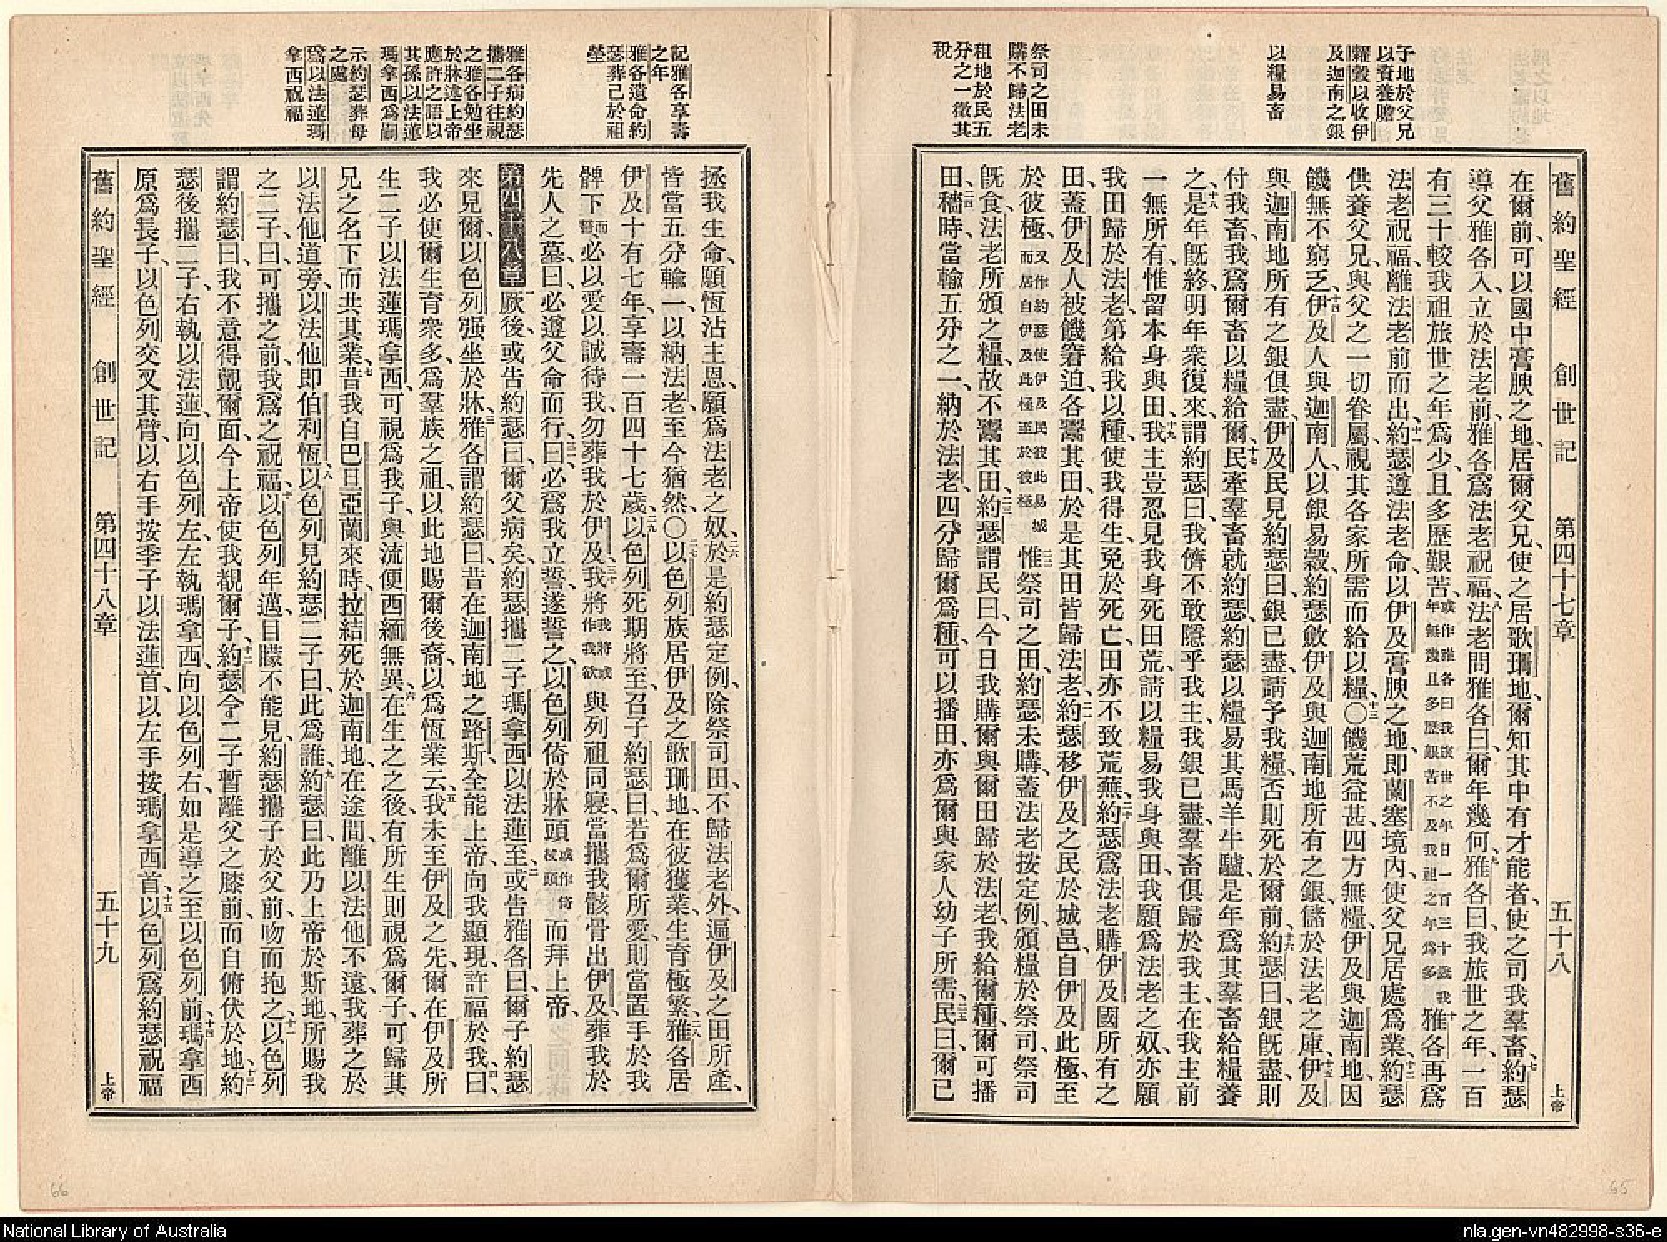 子地於父兄
以資養贍
糶穀以收伊
及迦南之銀
以糧易畜
祭司之田未
購不歸法老
租地於民五
分之一徵其
稅
舊約聖經 創世記 第四十七章 五十八 上帝
在爾前可以國中膏腴之地、居爾父兄、使之居歌珊地、爾知其中有才能者、使之司我羣畜、七約瑟
導父雅各入、立於法老前、雅各爲法老祝福、八法老問雅各曰、爾年幾何、九雅各曰、我旅世之年、一百
有三十、較我祖旅世之年爲少、且多歷艱苦、或作雅各曰我旅世之年日一百三十歲我年無幾且多歷艱苦不及我祖之年爲多十雅各再爲
法老祝福、離法老前而出、十一約瑟遵法老命、以伊及膏腴之地、卽蘭塞境內、使父兄居處爲業、十二約瑟
供養父兄、與父之一切眷屬、視其各家所需而給以糧、○十三饑荒益甚、四方無糧、伊及與迦南地、因
饑無不窮乏、十四伊及人與迦南人、以銀易穀、約瑟斂伊及與迦南地所有之銀、儲於法老之庫、十五伊及
與迦南地所有之銀俱盡、伊及民見約瑟曰、銀已盡、請予我糧、否則死於爾前、十六約瑟曰、銀旣盡、則
付我畜、我爲爾畜以糧給爾、十七民牽羣畜就約瑟、約瑟以糧易其馬羊牛驢、是年爲其羣畜給糧養
之、十八是年旣終、明年衆復來、謂約瑟曰、我儕不敢隱乎我主、我銀已盡、羣畜俱歸於我主、在我主前
一無所有、惟留本身與田、十九我主豈忍見我身死田荒、請以糧易我身與田、我願爲法老之奴、亦願
我田歸於法老、第給我以種、使我得生、免於死亡、田亦不致荒蕪、二十約瑟爲法老購伊及國所有之
田、蓋伊及人被饑窘迫、各鬻其田、於是其田皆歸法老、二一約瑟移伊及之民於城邑、自伊及此極、至
於彼極、又作約瑟使伊及民彼此易城而居自伊及此極至於彼極二二惟祭司之田、約瑟未購、蓋法老按定例、頒糧於祭司、祭司
旣食法老所頒之糧、故不鬻其田、二三約瑟謂民曰、今日我購爾與爾田歸於法老、我給爾種、爾可播
田、二四穡時、當輸五分之一、納於法老、四分歸爾爲種、可以播田、亦爲爾與家人幼子所需、二五民曰、爾已
記雅各享壽
之年
雅各遺命約
瑟葬己於祖
塋
雅各病約瑟
攜二子往視
之雅各勉坐
於牀述上帝
應許之語以
其孫以法蓮
瑪拿西爲嗣
示約瑟葬母
之處
爲以法蓮瑪
拿西祝福
拯我生命、願恆沾主恩、願爲法老之奴、二六於是約瑟定例、除祭司田、不歸法老外、遍伊及之田所產、
皆當五分輸一、以納法老、至今猶然、○二七以色列族居伊及之歌珊地、在彼獲業、生育極繁、二八雅各居
伊及十有七年、享壽一百四十七歲、二九以色列死期將至、召子約瑟曰、若爲爾所愛、則當置手於我
髀下而誓、必以愛以誠待我、勿葬我於伊及、三十我將我將或作我欲與列祖同寢、當攜我骸骨出伊及、葬我於
先人之墓、曰、必遵父命而行、三一曰、必爲我立誓、遂誓之、以色列倚於牀頭或作倚杖頭而拜上帝、
第四十八章 厥後、或告約瑟曰、爾父病矣、約瑟攜二子瑪拿西、以法蓮至、二或告雅各曰、爾子約瑟
來見爾、以色列强坐於牀、三雅各謂約瑟曰、昔在迦南地之路斯、全能上帝、向我顯現、許福於我、四曰、
我必使爾生育衆多、爲羣族之祖、以此地賜爾後裔、以爲恆業云、五我未至伊及之先、爾在伊及所
生二子、以法蓮、瑪拿西、可視爲我子、與流便西緬無異、六在生之之後、有所生則視爲爾子、可歸其
兄之名下、而共其業、七昔我自巴旦亞蘭來時、拉結死於迦南地、在途間、離以法他不遠、我葬之於
以法他道旁、以法他卽伯利恆、八以色列見約瑟二子曰、此爲誰、九約瑟曰、此乃上帝於斯地、所賜我
之二子、曰、可攜之前、我爲之祝福、十以色列年邁、目矇不能見、約瑟攜子於父前、吻而抱之、十一以色列
謂約瑟曰、我不意得覿爾面、今上帝使我覩爾子、十二約瑟令二子暫離父之膝前、而自俯伏於地、十三約
瑟後攜二子、右執以法蓮、向以色列左、左執瑪拿西、向以色列右、如是導之至以色列前、十四瑪拿西
原爲長子、以色列交叉其臂、以右手按季子以法蓮首、以左手按瑪拿西首、十五以色列爲約瑟祝福
舊約聖經 創世記 第四十八章 五十九 上帝
66
65
National Library of Australia
nla.gen-vn482998-s36-e